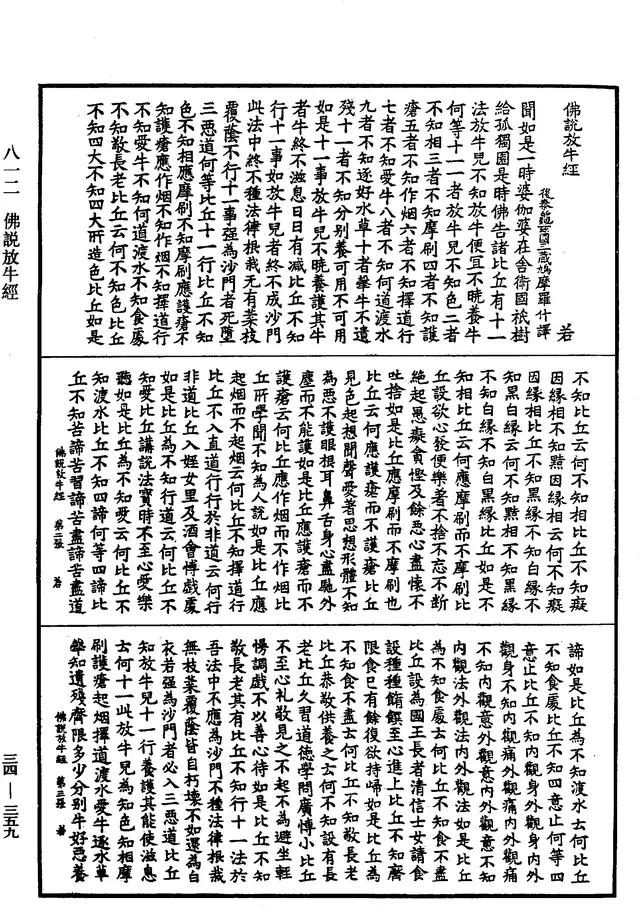 佛說放牛經 若
後秦龜茲國三藏鳩摩羅什譯
聞如是一時婆伽婆在舍衛國祇樹
給孤獨園是時佛告諸比丘有十一
法放牛兒不知放牛便宜不曉養牛
何等十一一者放牛兒不知色二者
不知相三者不知摩刷四者不知護
瘡五者不知作烟六者不知擇道行
七者不知愛牛八者不知何道渡水
九者不知逐好水草十者牛不遺
殘十一者不知分別養可用不可用
如是十一事放牛兒不曉養護其牛
者牛終不滋息日日有減比丘不知
行十一事如放牛兒者終不成沙門
此法中終不種法律根栽无有葉枝
覆蔭不行十一事强為沙門者死墮
三惡道何等比丘十一行比丘不知
色不知相應摩刷不知摩刷應護瘡不
知護瘡應作烟不知作烟不知擇道行
不知愛牛不知何道渡水不知食處
不知敬長老比丘云何不知色比丘
不知四大不知四大所造色比丘如是
不知比丘云何不知相比丘不知癡
因緣相不知黠因緣相云何不知癡
因緣相比丘不知黑緣不知白緣不
知黑白緣云何不知黠相不知黑緣
不知白緣不知白黑緣比丘如是不
知相比丘云何應摩刷而不摩刷比
丘設欲心發便樂著不捨不忘不斷
絕起愚癡貪慳及餘惡心盡懷不
吐捨如是比丘應摩刷而不摩刷也
比丘云何應護瘡而不護瘡比丘
見色起想聞聲愛著思想形體不知
為惡不護眼根耳鼻舌身心盡馳外
塵而不能護如是比丘應護瘡而不
護瘡云何比丘應作烟而不作烟比
丘所學聞不知為人說如是比丘應
起烟而不起烟云何比丘不知擇道行
比丘不入直道行行於非道云何行
非道比丘入婬女里及酒會博戲處
如是比丘為不知行道云何比丘不
知愛比丘講說法寶時不至心愛樂
聽如是比丘為不知愛云何比丘不
知渡水比丘不知四諦何等四諦比
丘不知苦諦苦習諦苦盡諦苦盡道
佛說放牛經 第二張 若
諦如是比丘為不知渡水云何比丘
不知食處比丘不知四意止何等四
意止比丘不知內觀身外觀身內外
觀身不知內觀痛外觀痛內外觀痛
不知內觀意外觀意內外觀意不知
內觀法外觀法內外觀法如是比丘
為不知食處云何比丘不知食不盡
比丘設為國王長者清信士女請食
設種種餚饌至心進上比丘不知齊
限食已有餘復欲持歸如是比丘為
不知食不盡云何比丘不知敬長老
比丘恭敬供養之云何不知設有長
老比丘久習道德學問廣博小比丘
不至心礼敬見之不起不為避坐輕
慢調戲不以善心待如是比丘不知
敬長老其有比丘不知行十一法於
吾法中不應為沙門不種法律根栽
無枝葉覆蔭皆自朽壞不如還為白
衣若强為沙門者必入三惡道比丘
知放牛兒十一行養護其能使滋息
云何十一此放牛兒為知色知相摩
刷護瘡起烟擇道渡水愛牛逐水草
知遺殘齊限多少分別牛好惡養
佛說放牛經 第三張 若
八一二 佛說放牛經
三四—三五九